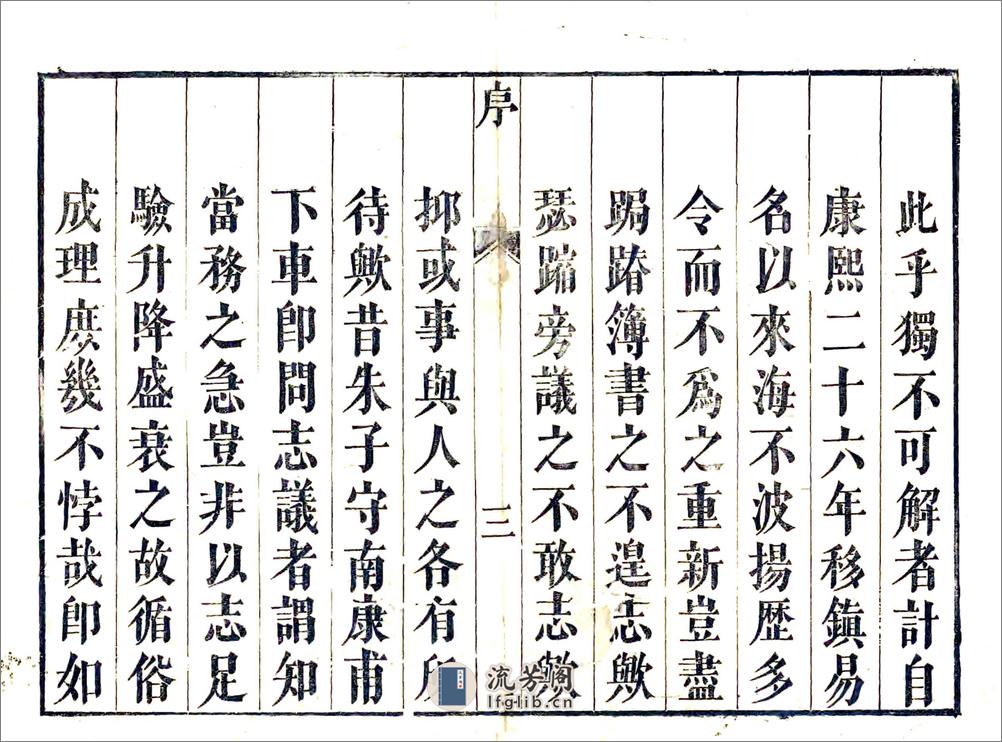 此乎獨不可解者計自
康熙二十六年移鎮易
名以來海不波揚歷多
令而不爲之重新豈盡
跼蹐簿書之不遑志歟
瑟踹旁議之不敢志歟
序
三
抑或事與人之各有所
待歟昔朱子守南康甫
下車卽問志議者謂知
當務之急豈非以志足
驗升降盛衰之故循俗
成理庶幾不悖哉卽如
流芳閣
lfglib.cn